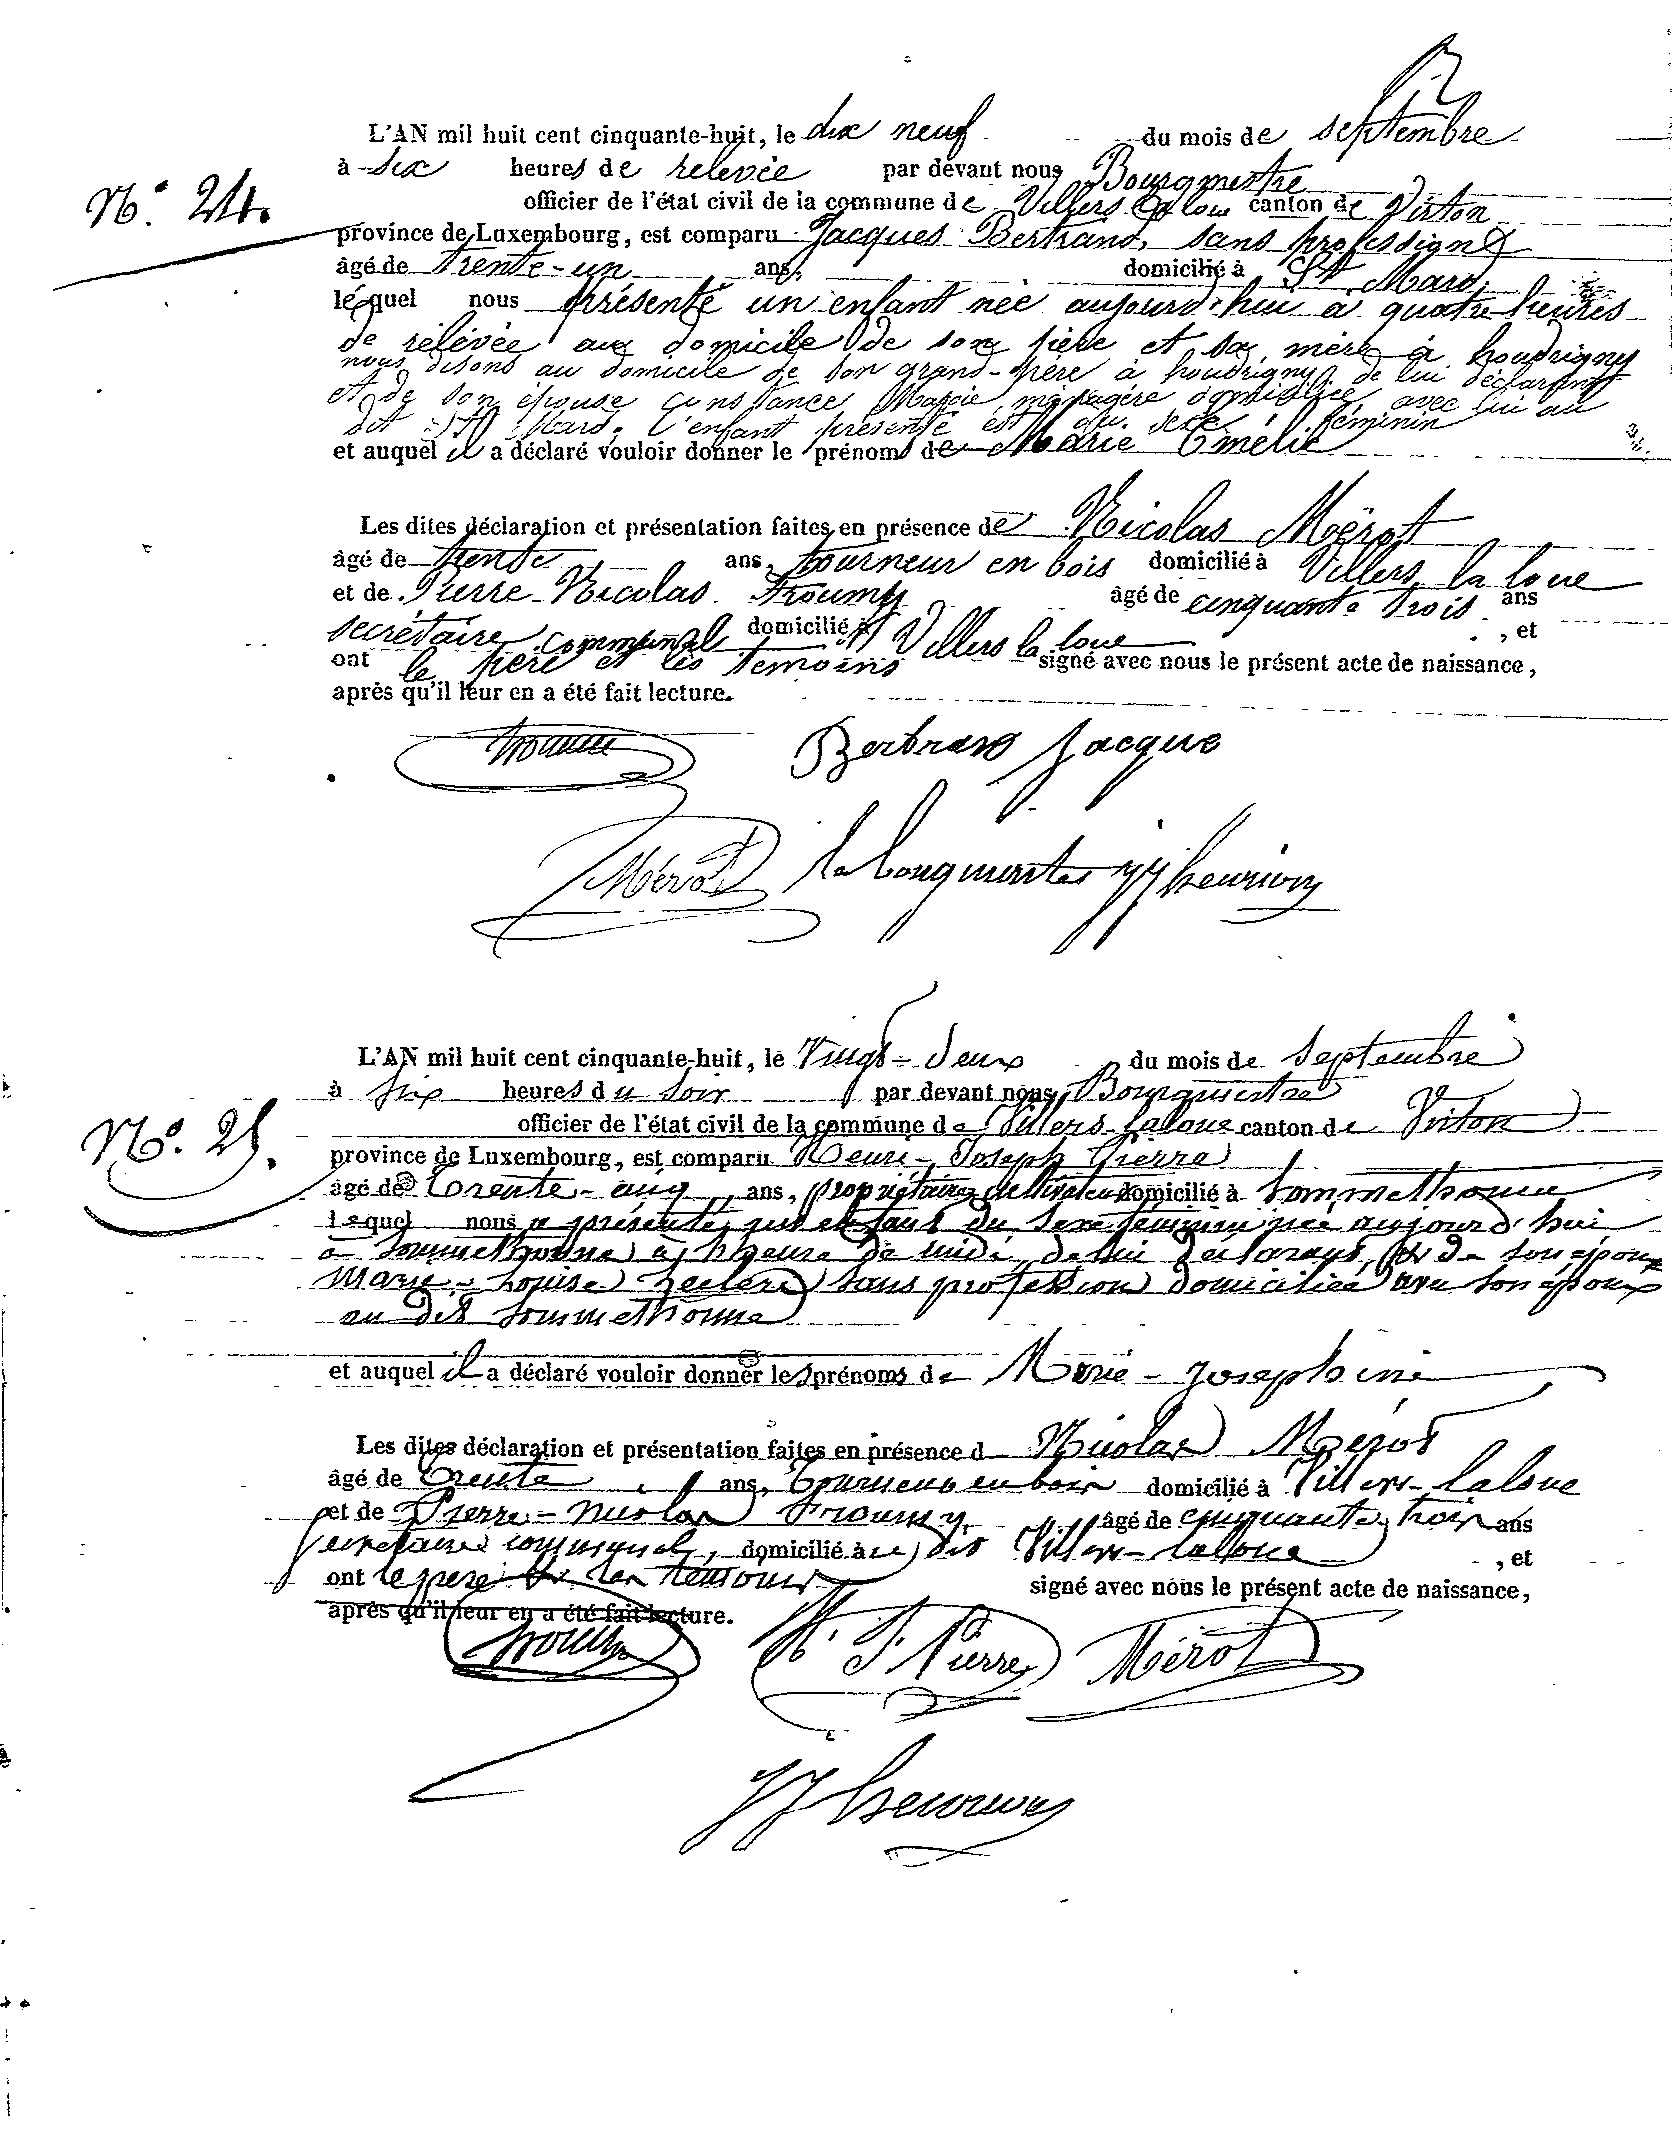 L'AN mil huit cent cinquante-huit, le dix neuf du mois de septembre
à six heures de relevée par devant nous Bourgmestre
officier de l'état civil de la commune de Villers la loue canton de Virton
N.° 24.
province de Luxembourg, est comparu Jacques Bertrand, sans profession
âgé de trente-un ans, domicilié à St Mard
léquel nous présenté un enfant née aujourd'hui à quatre heures
de rélévée au domicile de son père et sa mère à houdrigny
nous disons au domicile de son grand-père à houdrigny, de lui déclarant
et de son épouse Constance ménagère domiciliée avec lui au
dit St Mard, l'enfant présenté est du sexe féminin
et auquel il a déclaré vouloir donner le prénoms de Marie Emélie
Les dites déclaration et présentation faites en présence de Nicolas Mérot
âgé de trente ans, tourneur en bois domicilié à Villers la loue
et de Pierre Nicolas Froumy âgé de cinquante trois ans
secrétaire communal domicilié à Villers la loue , et
ont le père et les témoins signé avec nous le présent acte de naissance,
après qu'il leur en a été fait lecture.
Bertrand Jacque
Mérot
L'AN mil huit cent cinquante-huit, le vingt-deux du mois de septembre
à six heures du soir par devant nous, Bourgmestre
officier de l'état civil de la commune de Villers-laloue canton de Virton
N.° 25.
province de Luxembourg, est comparu Henri-Joseph Pierre
âgé de trente-cinq ans, propriétaire cultivateur domicilié à Sommethonne
lequel nous a présenté un enfant du sexe féminin née aujourd'hui
à Sommethonne à heure de midi, de lui déclarant, et de son épouse
Marie-Louise sans profession domiciliée avec son époux
au dit Sommethonne
et auquel il a déclaré vouloir donner les prénoms de Marie-Josephine
Les dites déclaration et présentation faites en présence d Nicolas Mérot
âgé de trente ans, tourneur en bois domicilié à Villers-laloue
et de Pierre-Nicolas Froumy âgé de cinquante trois ans
secrétaire communal, domicilié à dit Villers-laloue , et
ont le père et les témoins signé avec nous le présent acte de naissance,
après qu'il leur en a été fait lecture.
H. J. Pierre Mérot